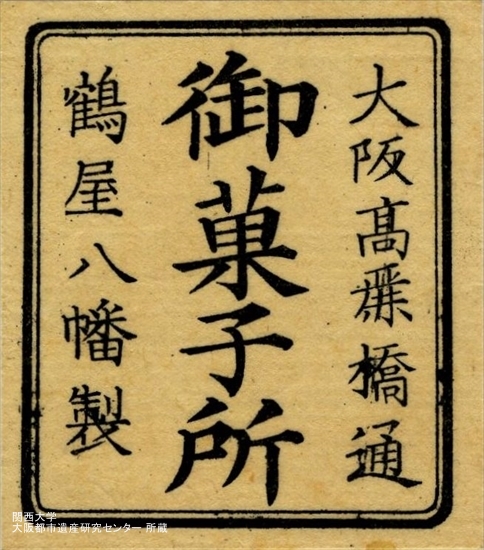 大阪高麗橋通
御菓子所
鶴屋八幡製
関西大学
大阪都市遺産研究センター 所蔵